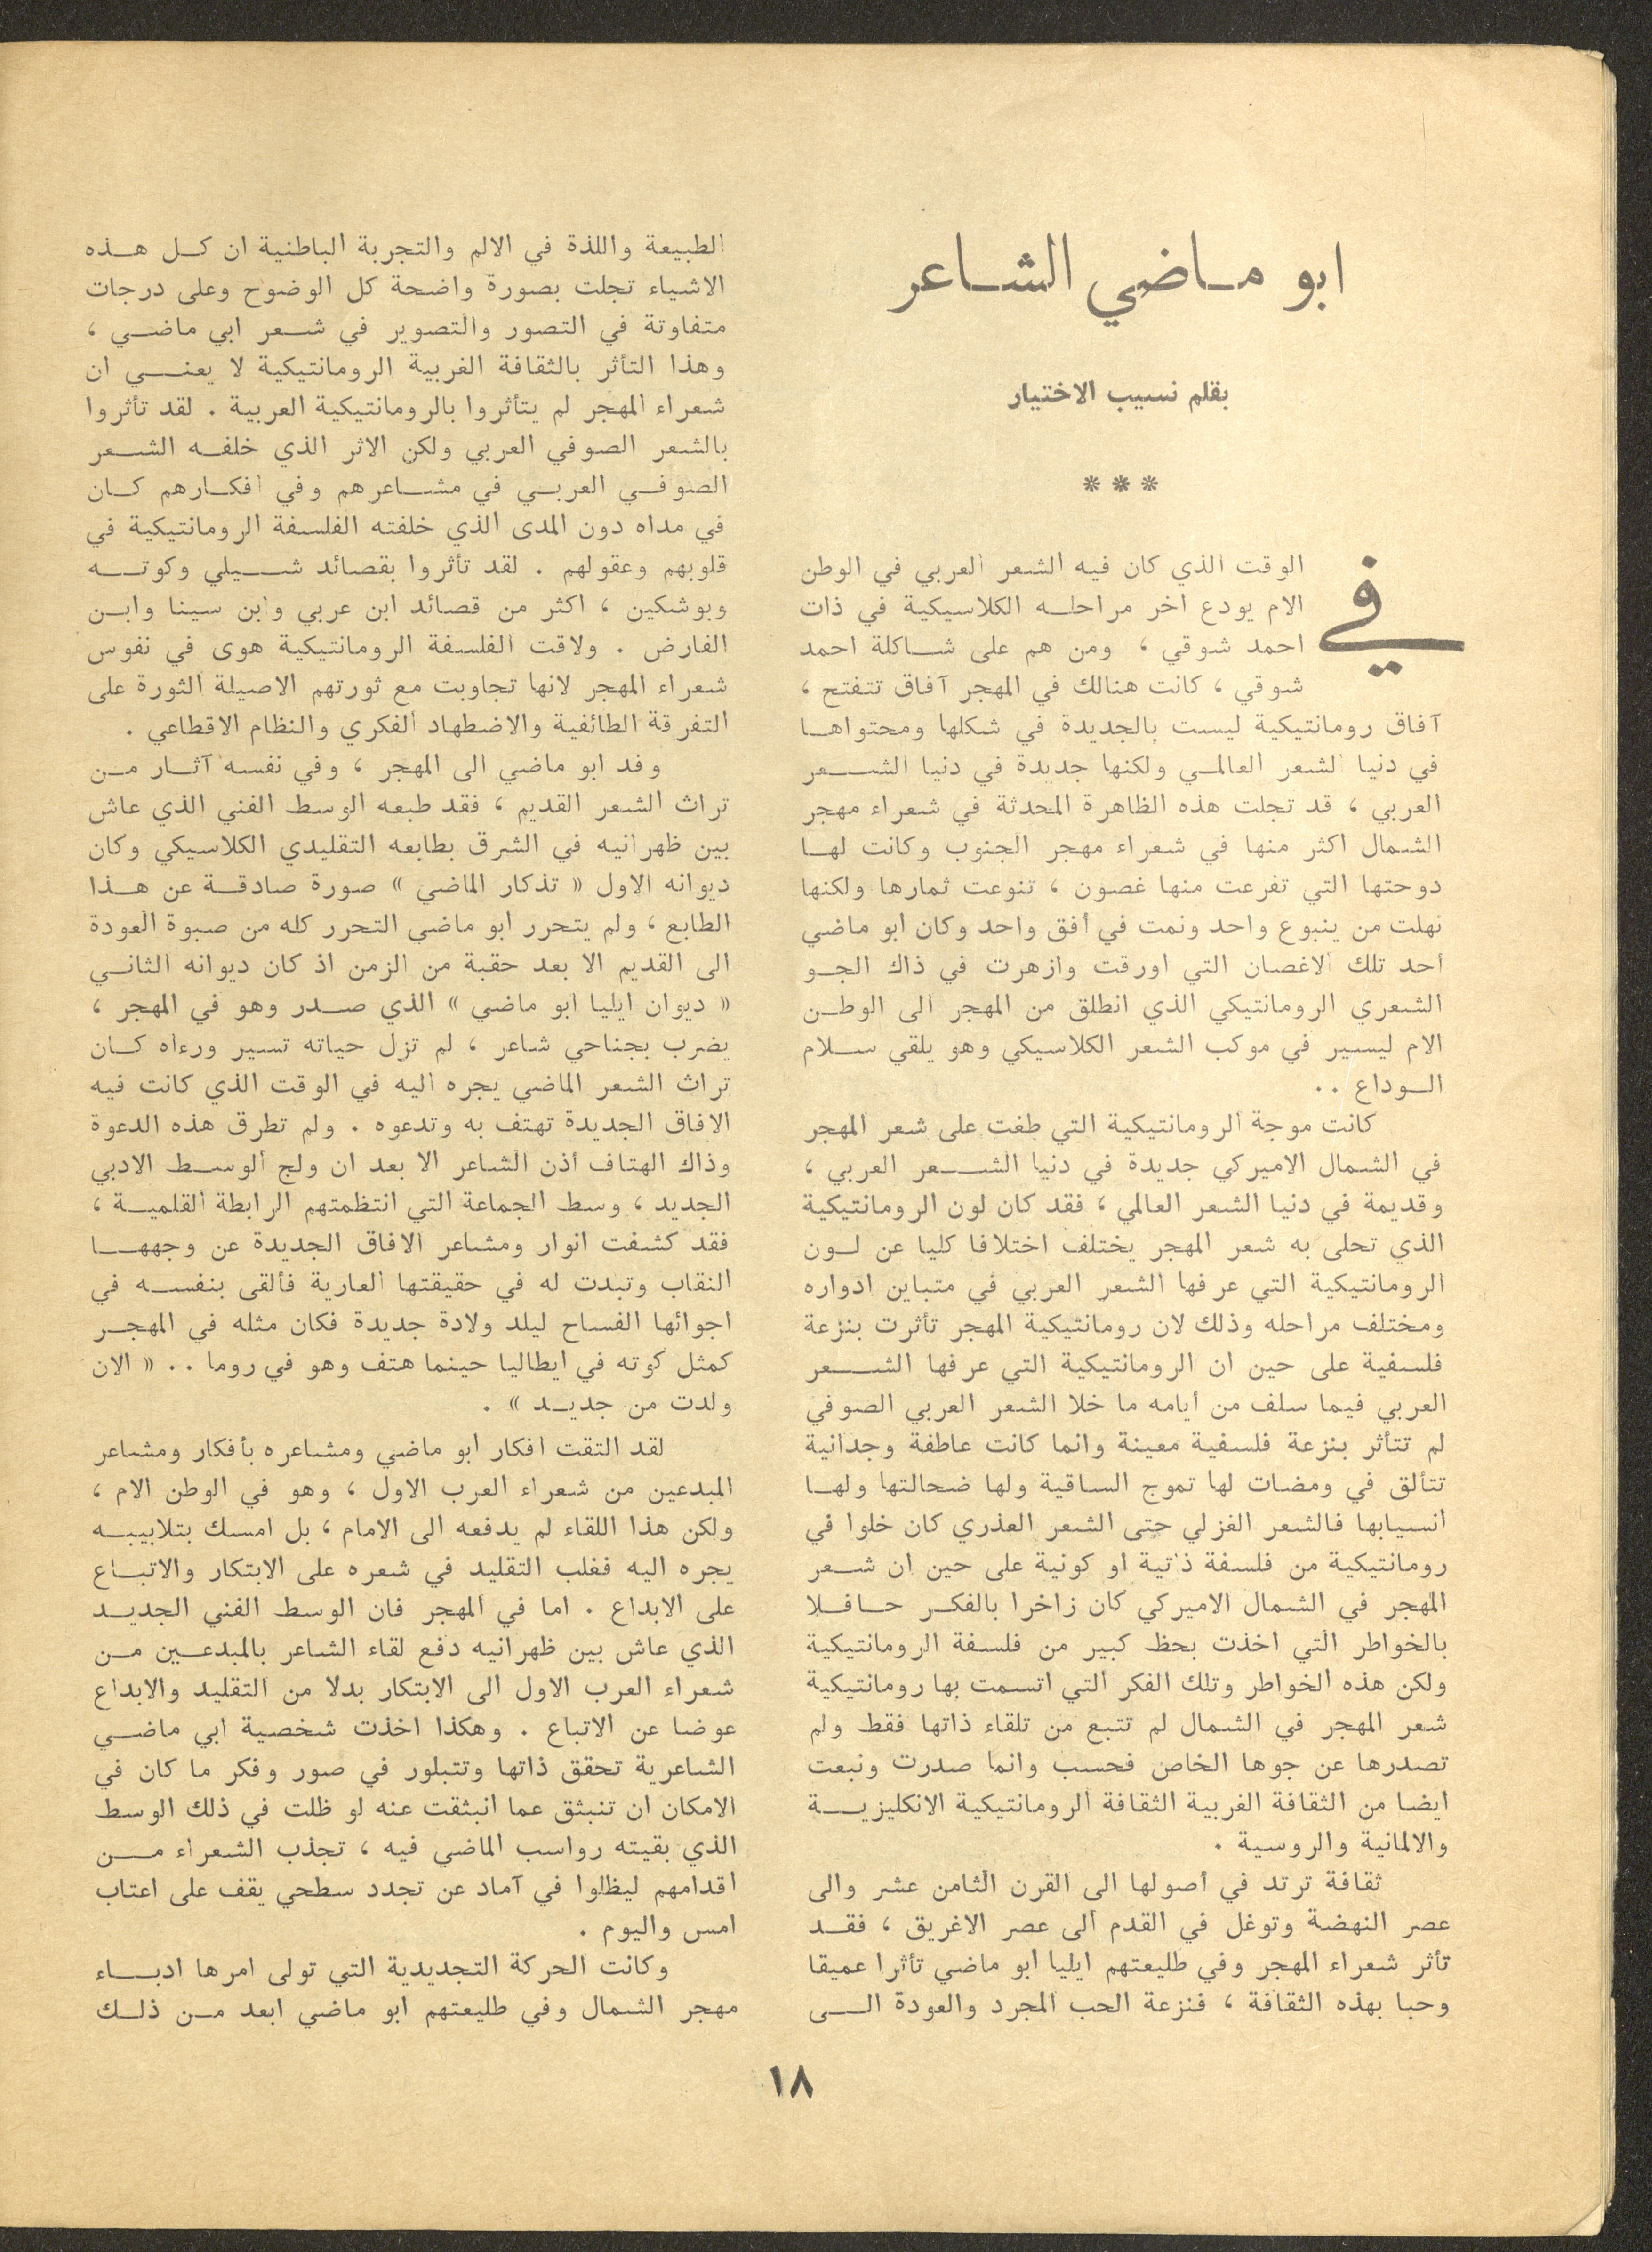 ابو ماضي الشاعر
بقلم نسيب الاختيار
***
في الوقت الذي كان فيه الشعر العربي في الوطن
الام يودع اخر مراحله الكلاسيكية في ذات
احمد شوقي ، ومن هم على شاكلة احمد
شوقي ، كانت هنالك في المهجر آفاق تتفتح ،
آفاق رومانتيكية ليست بالجديدة في شكلها ومحتواها
في دنيا الشعر العالمي ولكنها جديدة في دنيا الشعر
العربي ، قد تجلت هذه الظاهرة المحدثة في شعراء مهجر
الشمال اكثر منها في شعراء مهجر الجنوب وكانت لها
دوحتها التي تفرعت منها غصون ، تنوعت ثمارها ولكنها
نهلت من ينبوع واحد ونمت في أفق واحد وكان ابو ماضي
أحد تلك الاغصان التي اورقت وازهرت في ذاك الجو
الشعري الرومانتيكي الذي انطلق من المهجر الى الوطن
الام ليسير في موكب الشعر الكلاسيكي وهو يلقي سلام
الوداع ..
كانت موجة الرومانتيكية التي طغت على شعر المهجر
في الشمال الاميركي جديدة في دنيا الشعر العربي ،
وقديمة في دنيا الشعر العالمي ، فقد كان لون الرومانتيكية
الذي تحلى به شعر المهجر يختلف اختلافا كليا عن لون
الرومانتيكية التي عرفها الشعر العربي في متباين ادواره
ومختلف مراحله وذلك لان رومانتيكية المهجر تأثرت بنزعة
فلسفية على حين ان الرومانتيكية التي عرفها الشعر
العربي فيما سلف من أيامه ما خلا الشعر العربي الصوفي
لم تتأثر بنزعة فلسفية معينة وانما كانت عاطفة وجدانية
تتألق في ومضات لها تموج الساقية ولها ضحالتها ولها
انسيابها فالشعر الغزلي حتى الشعر العذري كان خلوا في
رومانتيكية من فلسفة ذاتية او كونية على حين ان شعر
المهجر في الشمال الاميركي كان زاخرا بالفكر حافلا
بالخواطر التي اخذت بحظ كبير من فلسفة الرومانتيكية
ولكن هذه الخواطر وتلك الفكر التي اتسمت بها رومانتيكية
شعر المهجر في الشمال لم تتبع من تلقاء ذاتها فقط ولم
تصدرها عن جوها الخاص فحسب وانما صدرت ونبعت
ايضا من الثقافة الغربية الثقافة الرومانتيكية الانكليزية
والالمانية والروسية .
ثقافة ترتد في أصولها الى القرن الثامن عشر والى
عصر النهضة وتوغل في القدم الى عصر الاغريق ، فقد
تأثر شعراء المهجر وفي طليعتهم ايليا ابو ماضي تأثرا عميقا
وحبا بهذه الثقافة ، فنزعة الحب المجرد والعودة الى
الطبيعة واللذة في الالم والتجربة الباطنية ان كل هذه
الاشياء تجلت بصورة واضحة كل الوضوح وعلى درجات
متفاوتة في التصور والتصوير في شعر ابي ماضي ،
وهذا التأثر بالثقافة الغربية الرومانتيكية لا يعني ان
شعراء المهجر لم يتأثروا بالرومانتيكية العربية . لقد تأثروا
بالشعر الصوفي العربي ولكن الاثر الذي خلفه الشعر
الصوفي العربي في مشاعرهم وفي افكارهم كان
في مداه دون المدى الذي خلفته الفلسفة الرومانتيكية في
قلوبهم وعقولهم . لقد تأثروا بقصائد شيلي وكوته
وبوشكين ، اكثر من قصائد ابن عربي وابن سينا وابن
الفارض . ولاقت الفلسفة الرومانتيكية هوى في نفوس
شعراء المهجر لانها تجاوبت مع ثورتهم الاصيلة الثورة على
التفرقة الطائفية والاضطهاد الفكري والنظام الاقطاعي .
وفد ابو ماضي الى المهجر ، وفي نفسه آثار من
تراث الشعر القديم ، فقد طبعه الوسط الفني الذي عاش
بين ظهرانيه في الشرق بطابعه التقليدي الكلاسيكي وكان
ديوانه الاول « تذكار الماضي » صورة صادقة عن هذا
الطابع ، ولم يتحرر ابو ماضي التحرر كله من صبوة العودة
الى القديم الا بعد حقبة من الزمن اذ كان ديوانه الثاني
« ديوان ايليا ابو ماضي » الذي صدر وهو في المهجر ،
يضرب بجناحي شاعر ، لم تزل حياته تسير ورءاه كان
تراث الشعر الماضي يجره اليه في الوقت الذي كانت فيه
الافاق الجديدة تهتف به وتدعوه . ولم تطرق هذه الدعوة
وذاك الهتاف أذن الشاعر الا بعد ان ولج الوسط الادبي
الجديد ، وسط الجماعة التي انتظمتهم الرابطة القلمية ،
فقد كشفت انوار ومشاعر الافاق الجديدة عن وجهها
النقاب وتبدت له في حقيقتها العارية فألقى بنفسه في
اجوائها الفساح ليلد ولادة جديدة فكان مثله في المهجر
كمثل كوته في ايطاليا حينما هتف وهو في روما .. « الان
ولدت من جديد » .
لقد التقت افكار ابو ماضي ومشاعره بأفكار ومشاعر
المبدعين من شعراء العرب الاول ، وهو في الوطن الام ،
ولكن هذا اللقاء لم يدفعه الى الامام ، بل امسك بتلابيبه
يجره اليه فغلب التقليد في شعره على الابتكار والاتباع
على الابداع . اما في المهجر فان الوسط الفني الجديد
الذي عاش بين ظهرانيه دفع لقاء الشاعر بالمبدعين من
شعراء العرب الاول الى الابتكار بدلا من التقليد والابداع
عوضا عن الاتباع . وهكذا اخذت شخصية ابي ماضي
الشاعرية تحقق ذاتها وتتبلور في صور وفكر ما كان في
الامكان ان تنبثق عما انبثقت عنه لو ظلت في ذلك الوسط
الذي بقيته رواسب الماضي فيه ، تجذب الشعراء من
اقدامهم ليظلوا في آماد عن تجدد سطحي يقف على اعتاب
امس واليوم .
وكانت الحركة التجديدية التي تولى امرها ادباء
مهجر الشمال وفي طليعتهم ابو ماضي ابعد من ذلك
١٨